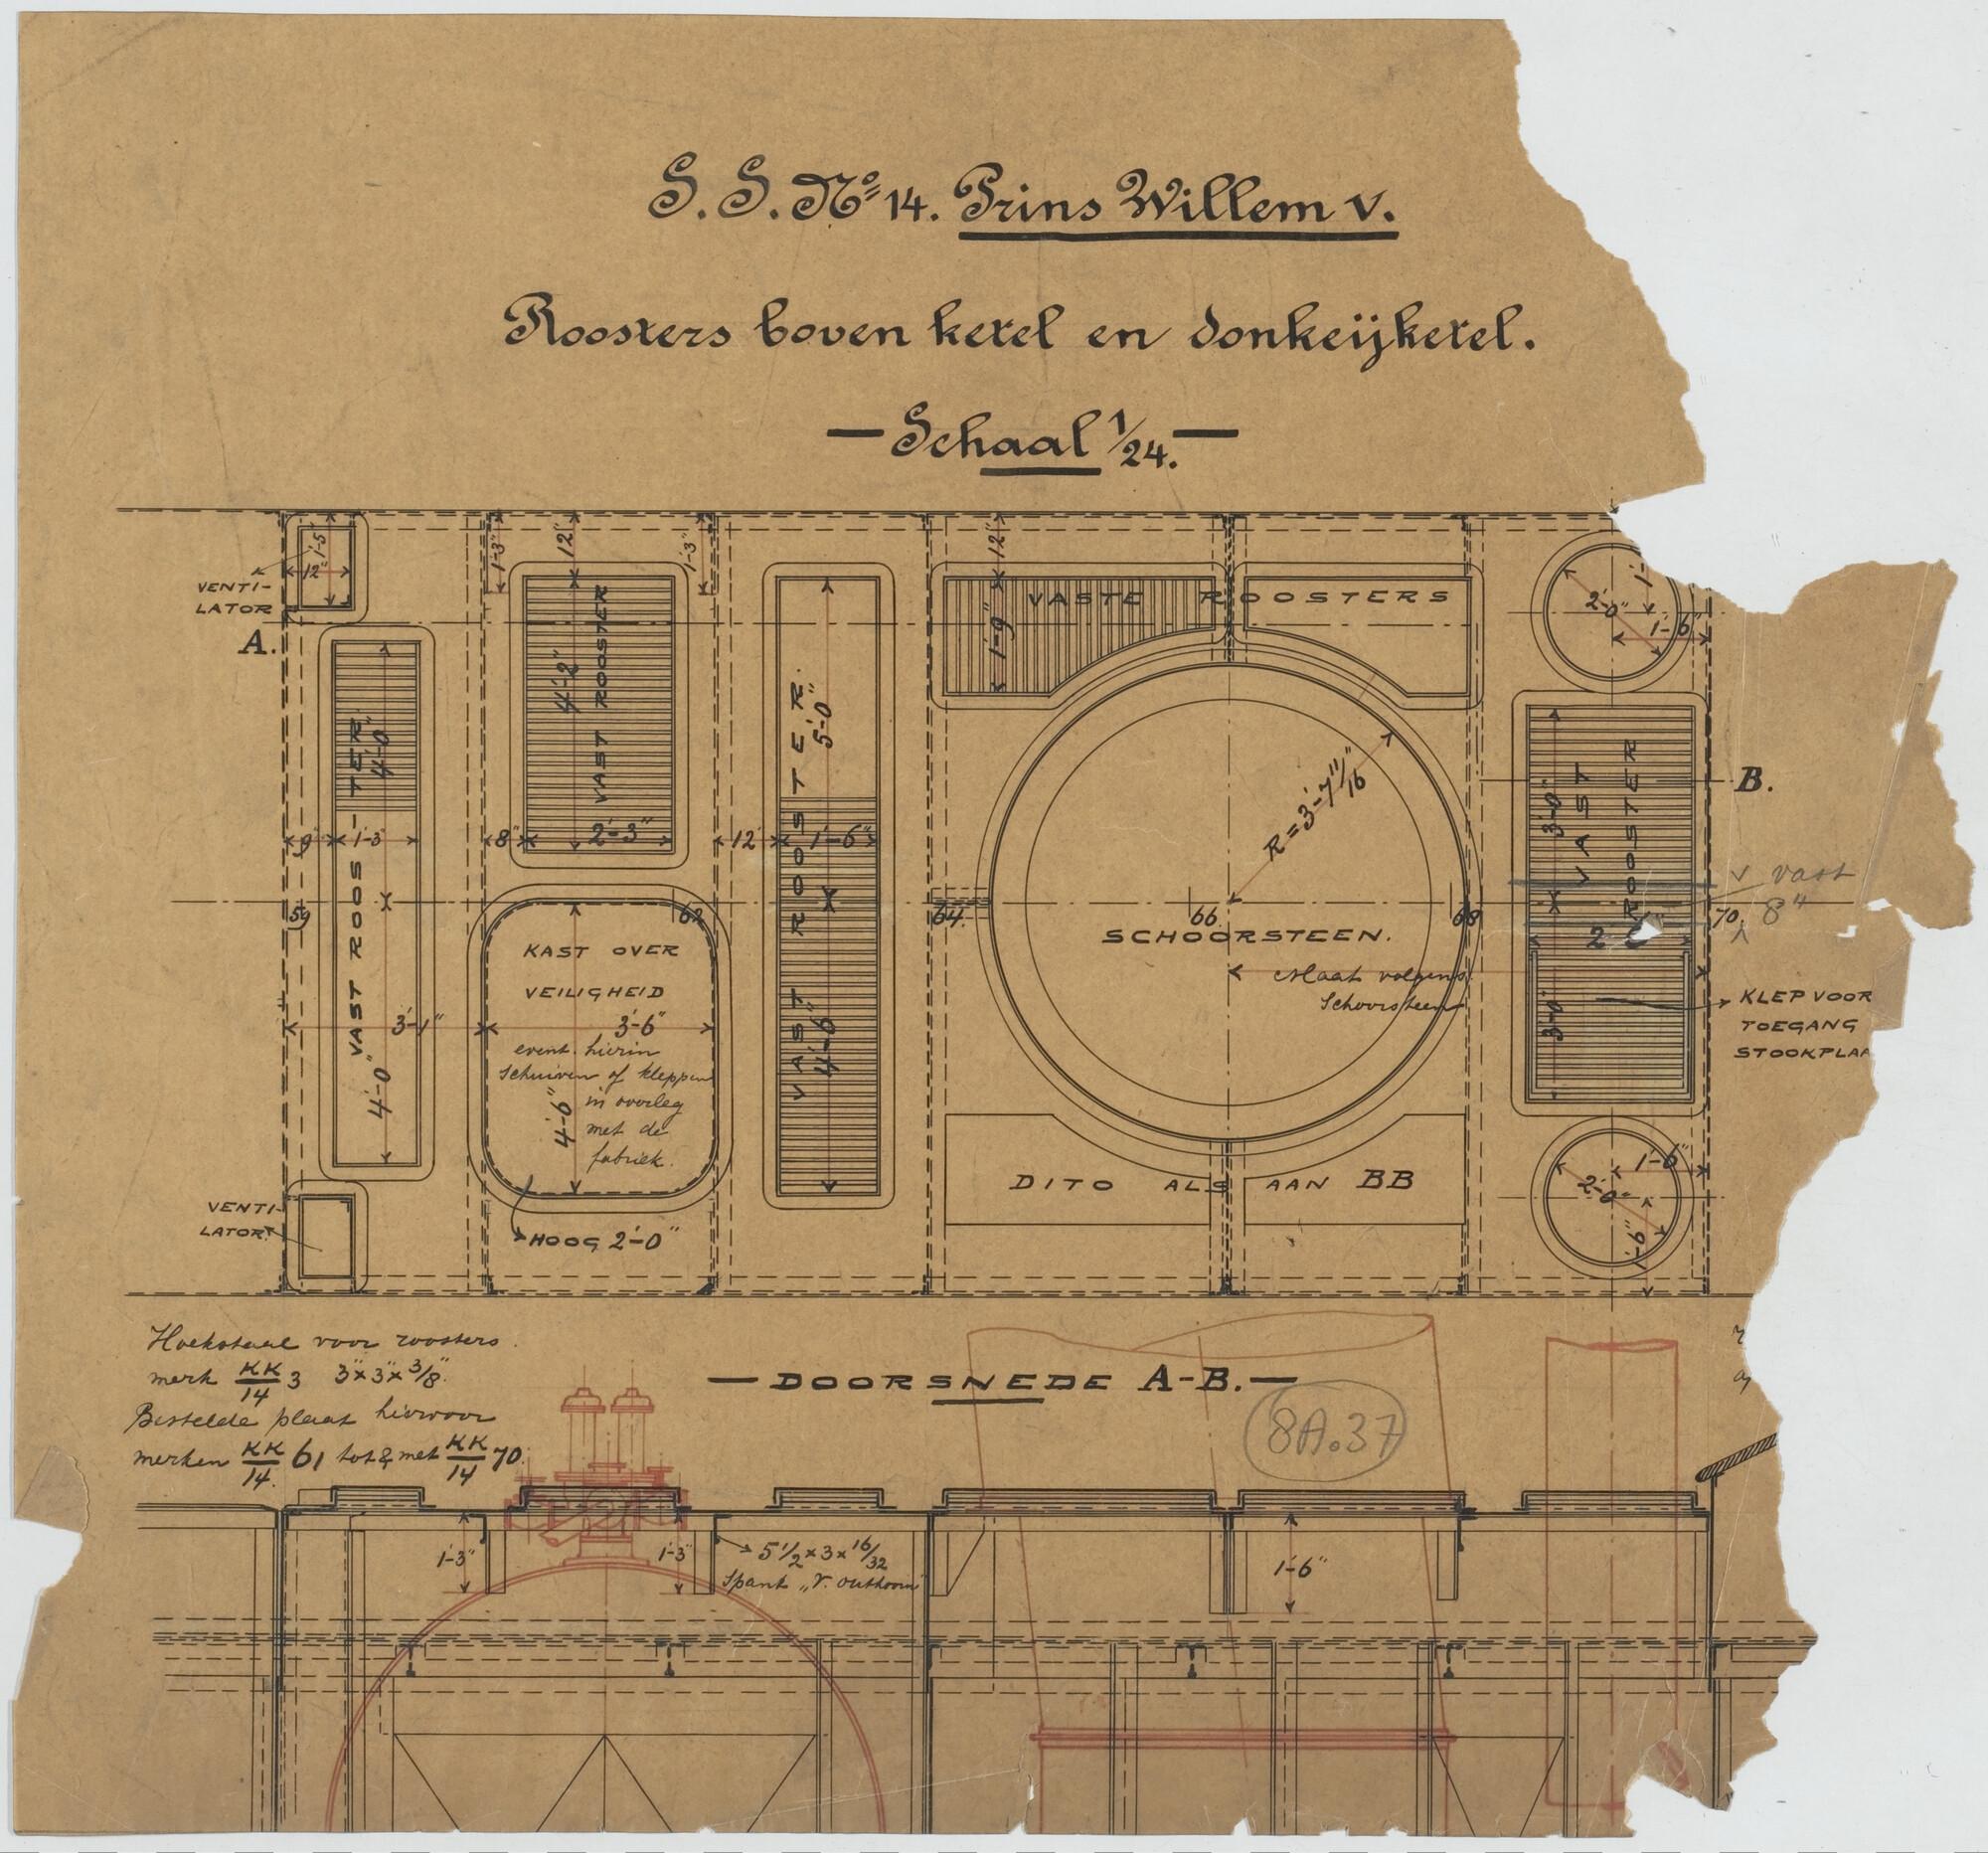 S. S. No 14. Prins Willem V.
Roosters boven ketel en donkeijketel.
—Schaal 1/24.—
1'-5"
12"
VENTI-
LATOR
A.
1'-3"
12"
1'-3"
4'-2"
VAST ROOSTER
12"
1'-9"
VASTE ROOSTERS
2'-0"
1'-6"
VAST ROOSTER
4'-0"
4'-0"
9"
1'-3"
8"
2'-3"
12"
1'-6"
VAST ROOSTER.
5'-0"
4'-6"
R=3'-7 11/16"
3'-0"
VAST
ROOSTER
B.
v vast
8"
59
62
64.
66.
68
70.
SCHOORSTEEN.
Maat volgens
Schoorsteen
3'-0"
KLEP VOOR
TOEGANG
STOOKPLAA
KAST OVER
VEILIGHEID
3'-1"
3'-6"
event. hierin
schuiven of kleppen
in overleg
met de
fabriek.
4'-6"
HOOG 2'-0"
VENTI-
LATOR.
DITO ALS AAN BB
1'-6"
2'-0"
1'-6"
Hoekstaal voor roosters.
merk KK/14 3 3"x3"x3/8".
Bestelde plaat hiervoor
merken KK/14. 61 tot & met KK/14 70.
—DOORSNEDE A-B.—
8A.37
1'-3"
1'-3"
5 1/2 x 3 x 16/32
Spant „V. Outhoorn"
1'-6"